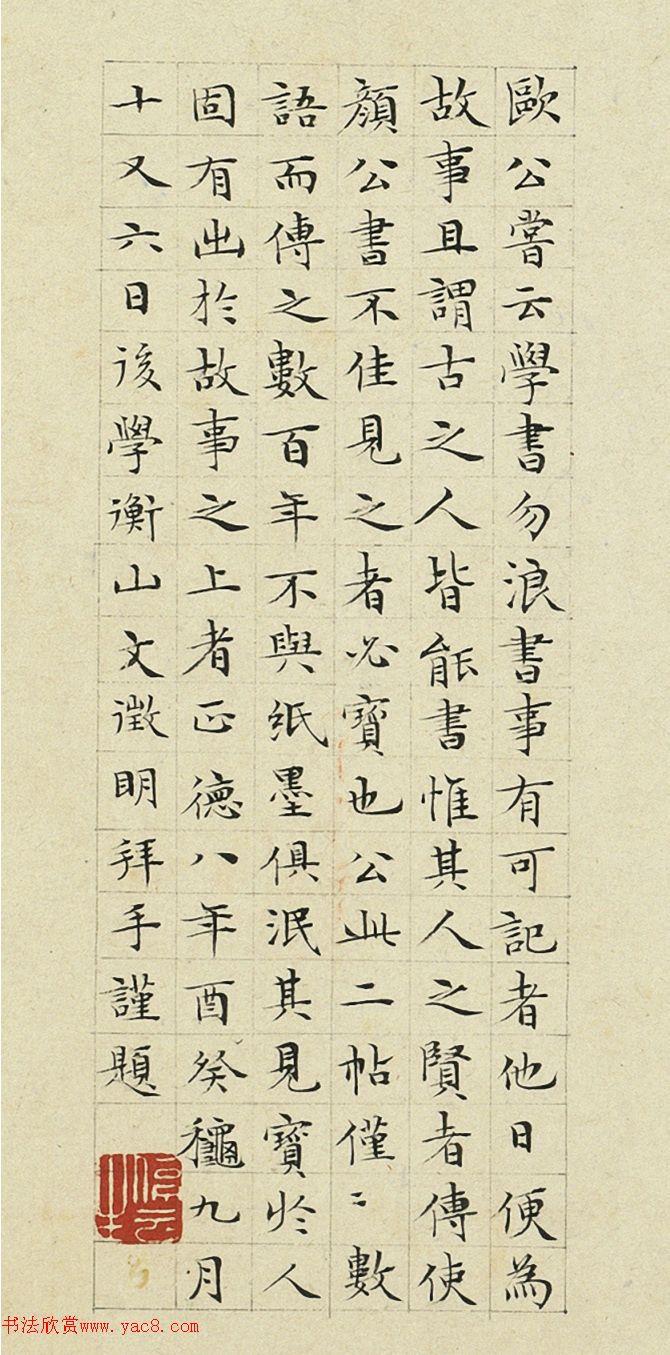 歐公嘗云學書勿浪書事有可記者他日便為
故事且謂古之人皆能書惟其人之賢者傳使
顏公書不佳見之者必寶也公此二帖僅〻數
語而傳之數百年不與紙墨俱泯其見寶於人
固有出於故事之上者正德八年酉癸龝九月
十又六日後學衡山文徵明拜手謹題
书法欣赏www.yac8.com